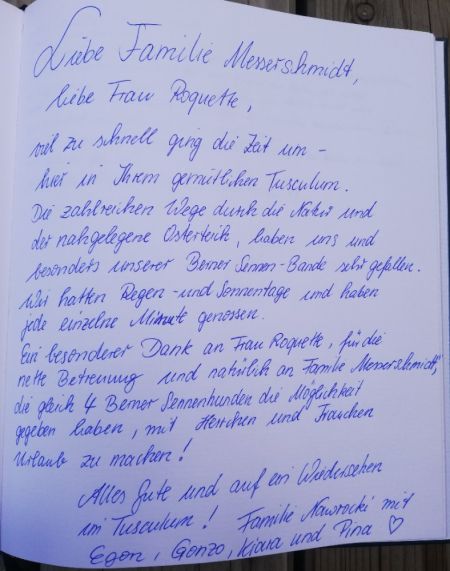 Liebe Familie Messerschmidt,
liebe Frau Roquette,
viel zu schnell ging die Zeit um –
hier in Ihrem gemütlichen Tusculum.
Die zahlreichen Wege durch die Natur und
der nahgelegene Osterteich, haben uns und
besonders unserer Berner Sennen-Bande sehr gefallen.
Wir hatten Regen- und Sonnentage und haben
jede einzelne Minute genossen.
Ein besonderer Dank an Frau Roquette, für die
nette Betreuung und natürlich an Familie Messerschmidt,
die gleich 4 Berner Sennenhunden die Möglichkeit
gegeben haben, mit Herrchen und Frauchen
Urlaub zu machen!
Alles Gute und auf ein Wiedersehen
im Tusculum! Familie Nawrocki mit
Egon, Gonzo, Kiara und Pina ♡